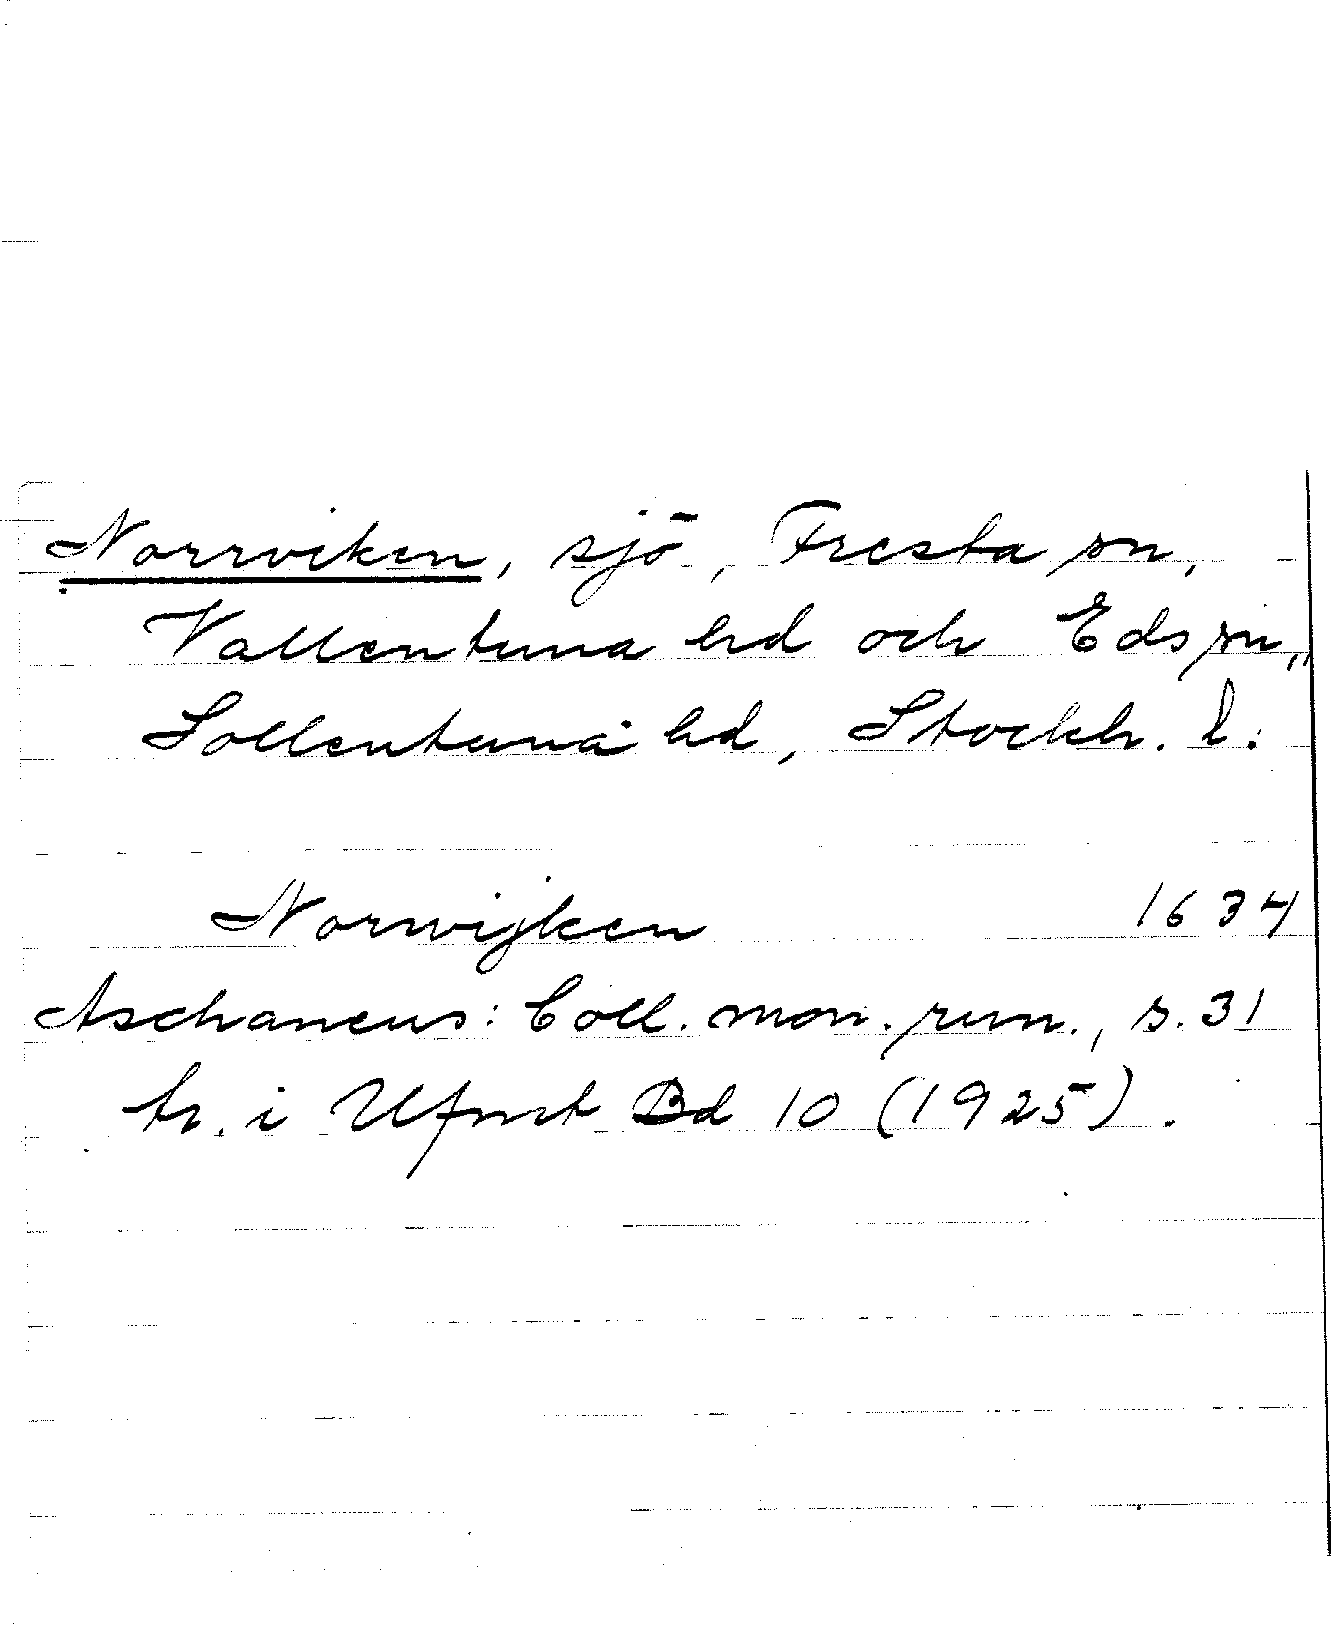 Norrviken, sjö, Fresta sn,
Vallentuna hd och Eds sn,
Sollentuna hd, Stockh. l.
Norwijken 1634
Aschaneus: Coll. mon. run., s. 31
tr. i Ufmt Bd 10 (1925).